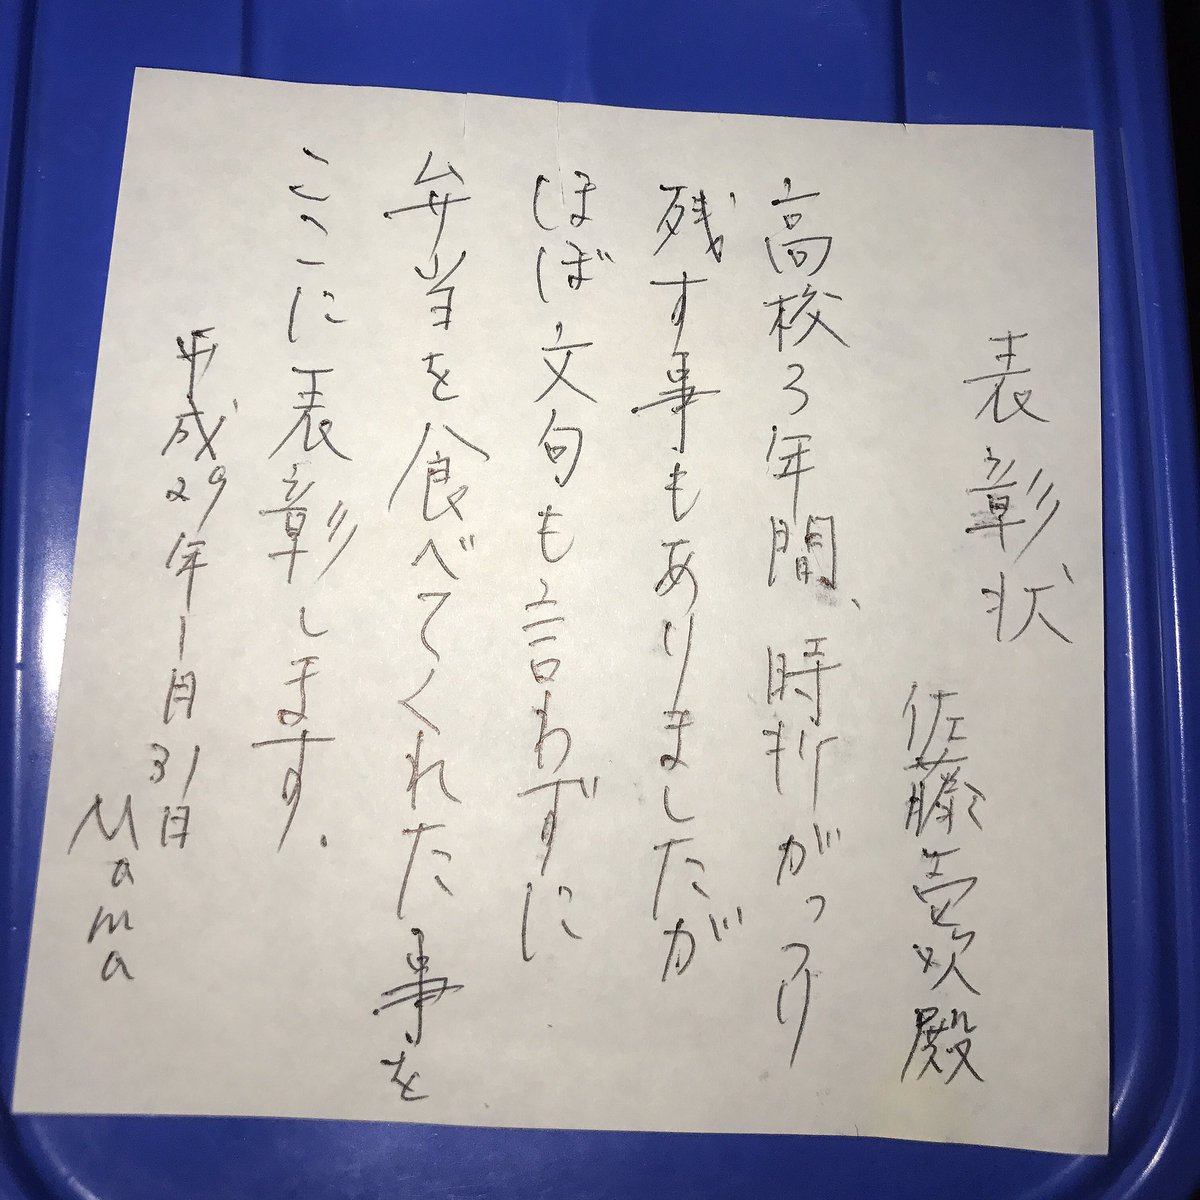 表彰状
佐藤壱吹殿
高校3年間、時折がっつり
残す事もありましたが
ほぼ文句も言わずに
弁当を食べてくれた事を
ここに表彰します.
平成29年1月31日
Mama